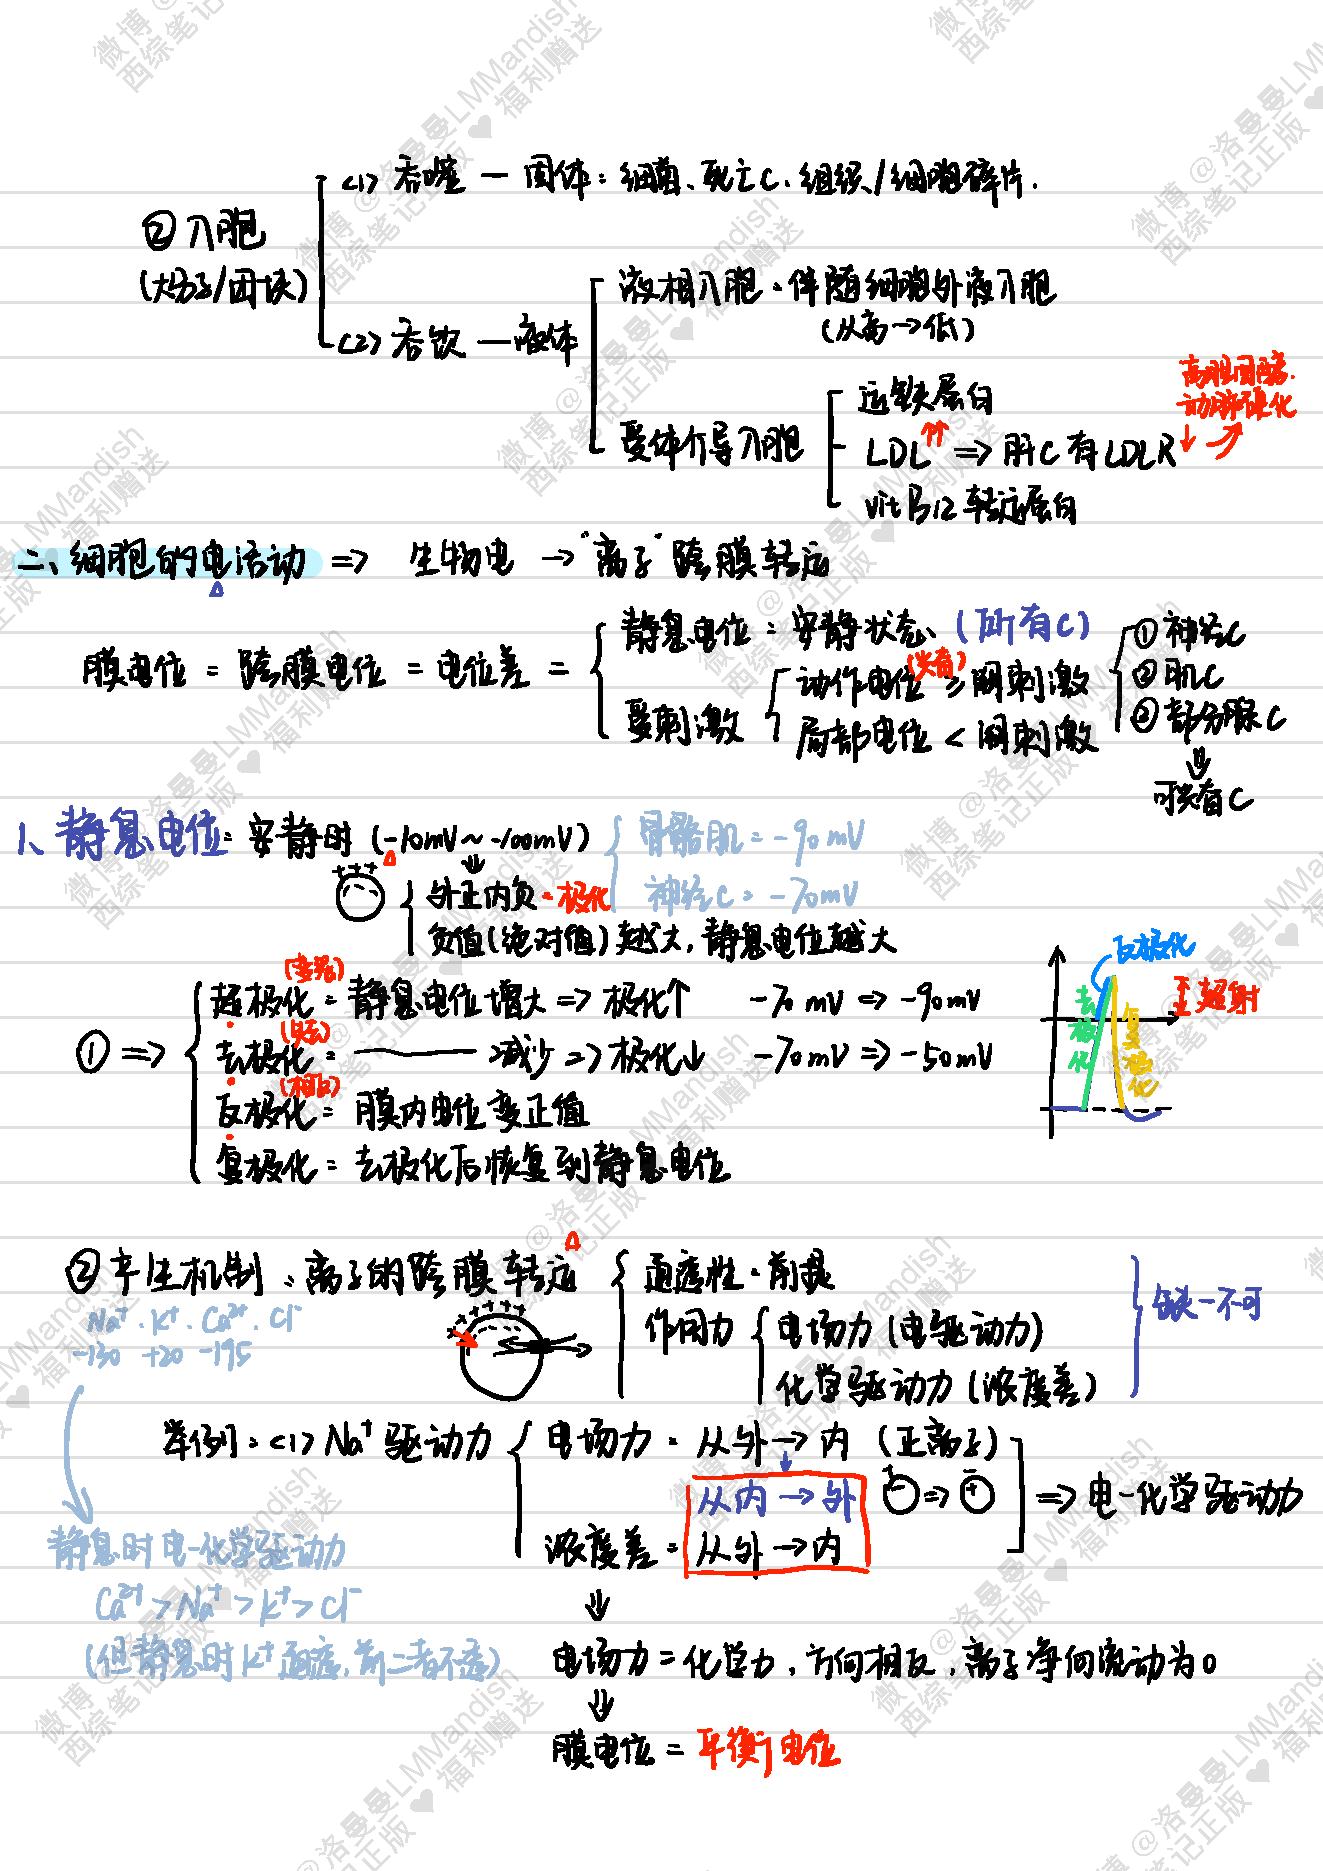 (1) 吞噬 — 固体：细菌、死亡C、组织/细胞碎片.
② 入胞
(大分子/团块)
液相入胞：伴随细胞外液入胞
(从高→低)
(2) 吞饮 — 液体
高胆固醇.
动脉硬化
运铁蛋白
受体介导入胞
LDL↑↑ => 肝C有LDLR
vit B12 转运蛋白
二、细胞的电活动 => 生物电 → "离子"跨膜转运
静息电位：安静状态 (所有C)
① 神经C
膜电位 = 跨膜电位 = 电位差 =
(兴奋)
动作电位 ≥ 阈刺激
② 肌C
受刺激
③ 部分腺C
局部电位 < 阈刺激
可兴奋C
1、静息电位：安静时 (-10mV~-100mV)
骨骼肌 = -90mV
+++
外正内负·极化
神经C = -70mV
负值(绝对值)越大，静息电位越大
反极化
超极化 = 静息电位增大 => 极化↑ -70mV => -90mV
去极化
复极化
超射
① =>
去极化 = —— 减少 => 极化↓ -70mV => -50mV
(相反)
反极化 = 膜内电位变正值
复极化 = 去极化后恢复到静息电位
② 产生机制：离子的跨膜转运
通透性·前提
缺一不可
Na⁺·K⁺·Ca²⁺·Cl⁻
-130 +20 -195
作用力
电场力 (电驱动力)
化学驱动力 (浓度差)
举例：(1) Na⁺驱动力
电场力：从外→内 (正离子)
从内→外
=> 电-化学驱动力
浓度差：从外→内
静息时电-化学驱动力
Ca²⁺>Na⁺>K⁺>Cl⁻
(但静息时K⁺通透，前二者不透)
电场力 = 化学力，方向相反，离子净向流动为0
膜电位 = 平衡电位
微博 @洛曼曼LMMandish
西综笔记正版♥福利赠送